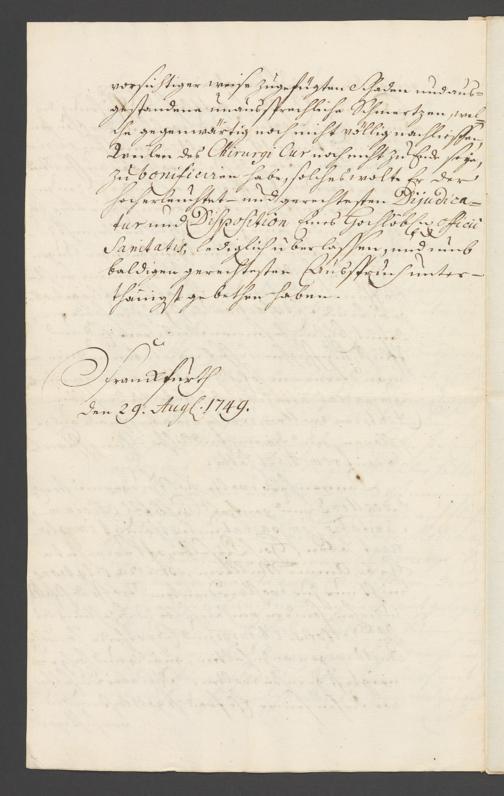 vorsichtiger weise zugefügten Schaden und aus-
gestandene unaussprechliche Schmertzen, wel-
che gegenwärtig noch nicht völlig nachliessen,
weilen des Chirurgi Cur noch nicht zu Ende seye,
zu bonificiren habe, solches wolte Er der
hocherleuchtet- und gerechtesten Dijudica-
tur und Disposition Eines Hochlöbl. officii
Sanitatis lediglich überlassen, und umb
baldigen gerechtesten Ausspruch unter-
thänigst gebethen haben.
Franckfurth
den 29. Aug. 1749.